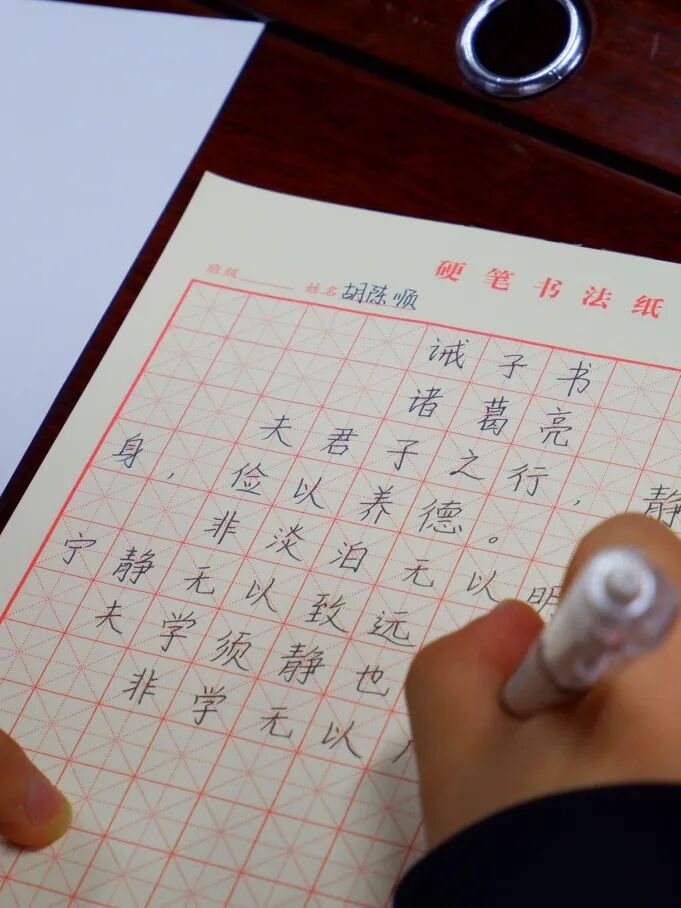 硬笔书法纸
班级 姓名 胡陈顺
诫子书
诸葛亮
夫君子之行，静
身，俭以养德。
非淡泊无以明
宁静无以致远
夫学须静也
非学无以